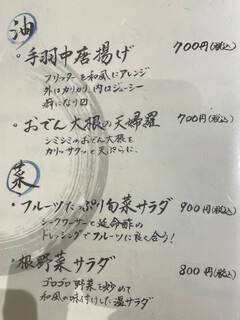 油
・手羽中唐揚げ 700円(税込)
フリッターを和風にアレンジ
外はカリカリ、内はジューシー
癖になり〼
・おでん大根の天婦羅 700円(税込)
シミシミのおでん大根を
カリッサクッと天ぷらに。
菜
・フルーツたっぷり旬菜サラダ 900円(税込)
シークワーサーと延命酢の
ドレッシングでフルーツに良く合う!
・根野菜サラダ 800円(税込)
ゴロゴロ野菜を炒めて
和風の味付けした温サラダ